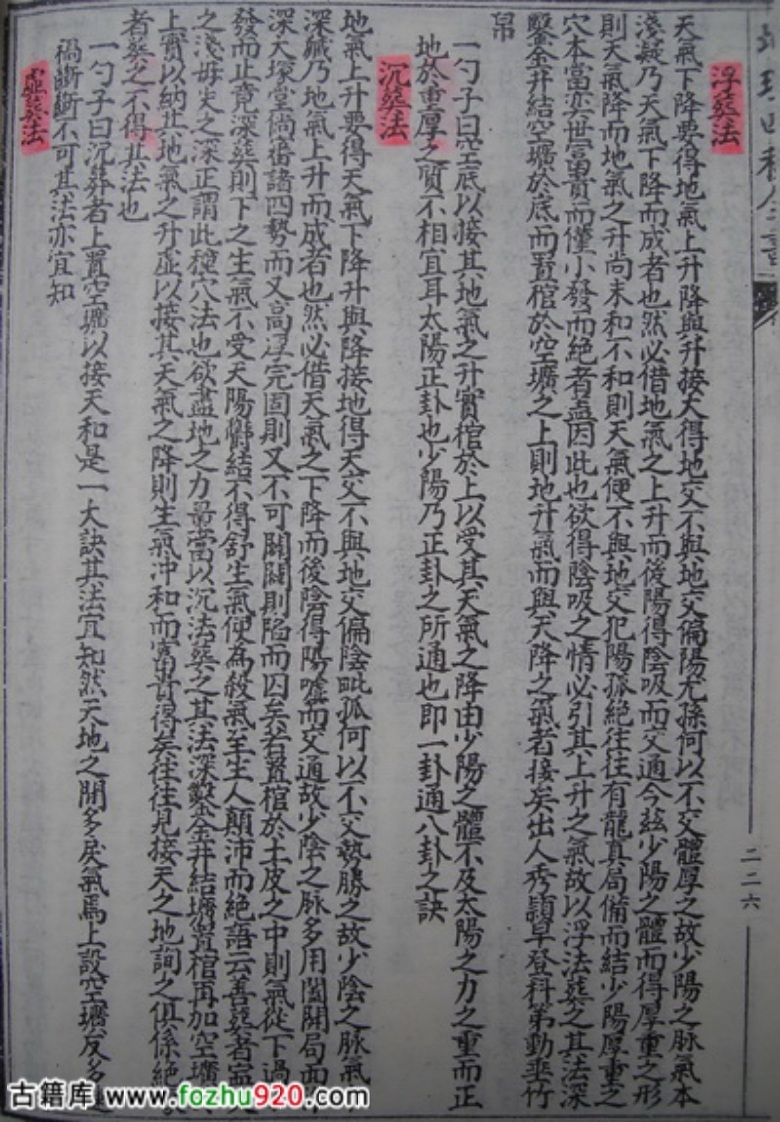 浮葬法
天氣下降要得地氣上升降與升接天得地交不與地交偏陽尤孫何以不交體厚之故少陽之脉氣本
淺凝乃天氣下降而成者也然必借地氣之上升而後陽得陰吸而交通今玆少陽之體而得厚重之形
則天氣降而地氣之升尚未和不和則天氣便不與地交犯陽孤絕往往有龍真局備而結少陽厚重之
穴本當奕世富貴而僅小發而絕者蓋因此也欲得陰吸之情必引其上升之氣故以浮法葬之其法深
鑿金井結空壙於底而置棺於空壙之上則地升氣而與天降之氣者接矣出人秀頴早登科第動垂竹
帛
一勺子曰空底以接其地氣之升實棺於上以受其天氣之降由少陽之體不及太陽之力之重而正
地於重厚之質不相宜耳太陽正卦也少陽乃正卦之所通也即一卦通八卦之訣
沉葬法
地氣上升要得天氣下降升與降接地得天交不與地交偏陰毗孤何以不交勢勝之故少陰之脉氣
深藏乃地氣上升而成者也然必借天氣之下降而後陰得陽噓而交通故少陰之脉多用闔關局面
深大塚堂倘審諸四勢而又高浮完固則又不可關關則陷而囚矣若置棺於土皮之中則氣從下過
發而止竟深葬則下之生氣不受天陽欝結不得舒生氣便為殺氣至生人顛沛而絕語云善葬者寍
之淺毋失之深正謂此種穴法也欲盡地之力最當以沉法葬之其法深鑿金井結壙置棺再加空壙
上實以納其地氣之升虛以接其天氣之降則生氣冲和而富貴得矣往往見接天之地詢之俱係絕
者葬之不得其法也
一勺子曰沉葬者上置空壙以接天和是一大訣其法宜知然天地之間多戾氣焉上設空壙反多
禍斷斷不可其法亦宜知
虛葬法
二二六
古籍库 www.fozhu920.com